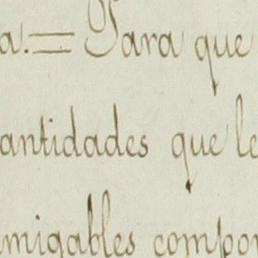 a.= Para que
antidades que le
migables compon